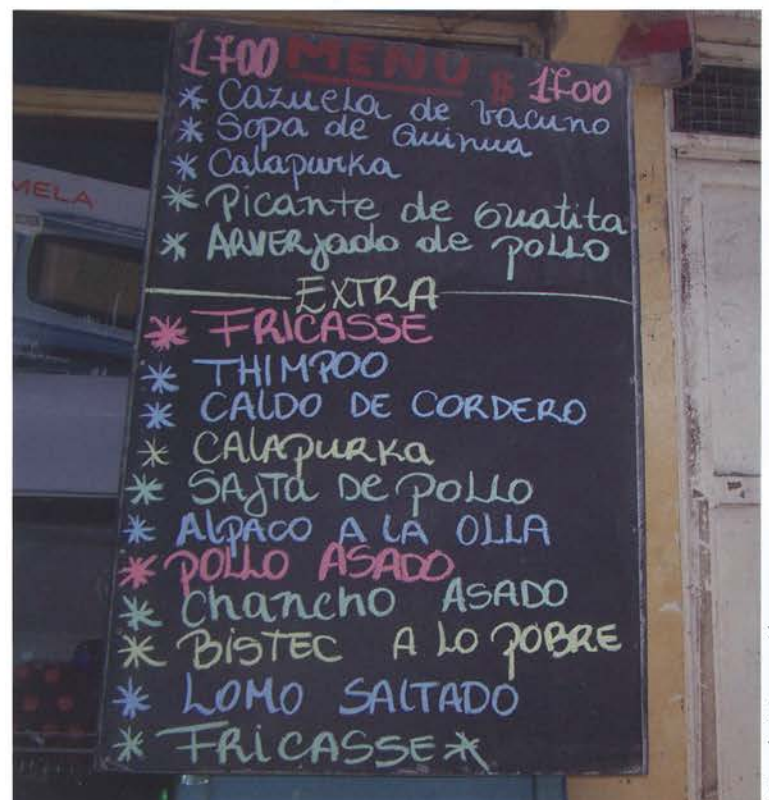 1700 MENU $ 1700
* Cazuela de vacuno
* Sopa de Quinua
* Calapurka
* Picante de Guatita
* ARVERjado de POLLO
EXTRA
* FRICASSE
* THIMPOO
* CALDO DE CORDERO
* CALAPURKA
* SAJTA DE POLLO
* ALPACO A LA OLLA
* POLLO ASADO
* Chancho ASADO
* BISTEC A LO POBRE
* LOMO SALTADO
* FRICASSE *
MELA